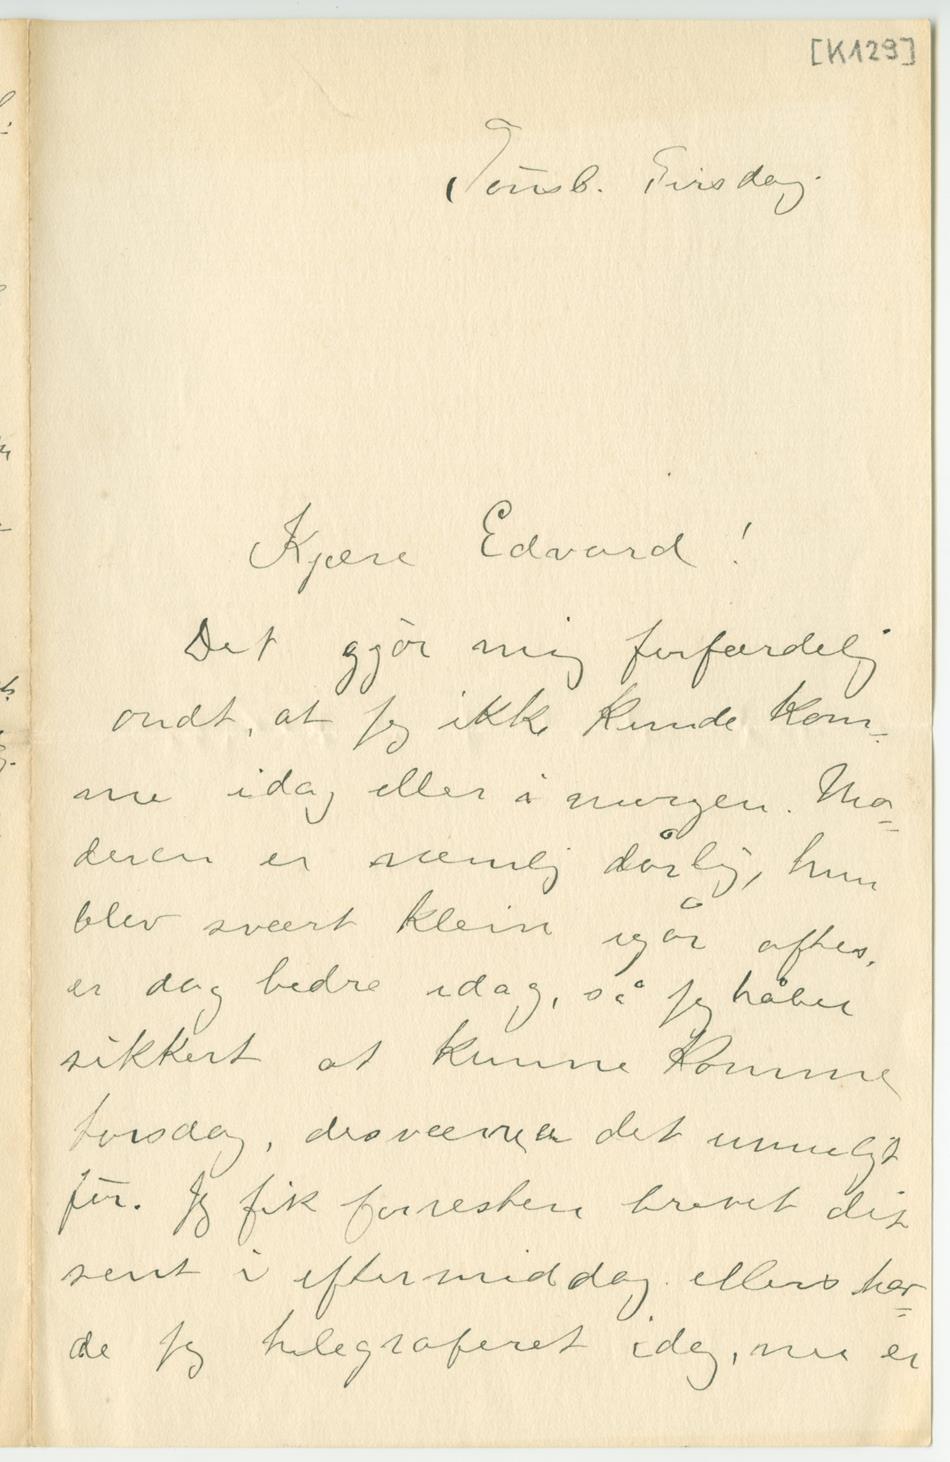 [K129]
Tönsb. Tirsdag.
Kjære Edvard!
Det gjör mig forfærdelig
ondt, at jeg ikke kunde kom-
me idag eller i morgen. Mo=
deren er nemlig dårlig, hun
blev svært klein igår aftes,
er dog bedre idag, så jeg håber
sikkert at kunne komme
torsdag, desværre er det umuligt
för. Jeg fik forresten brevet dit
sent i eftermiddag ellers hav=
de jeg telegraferet idag, nu er